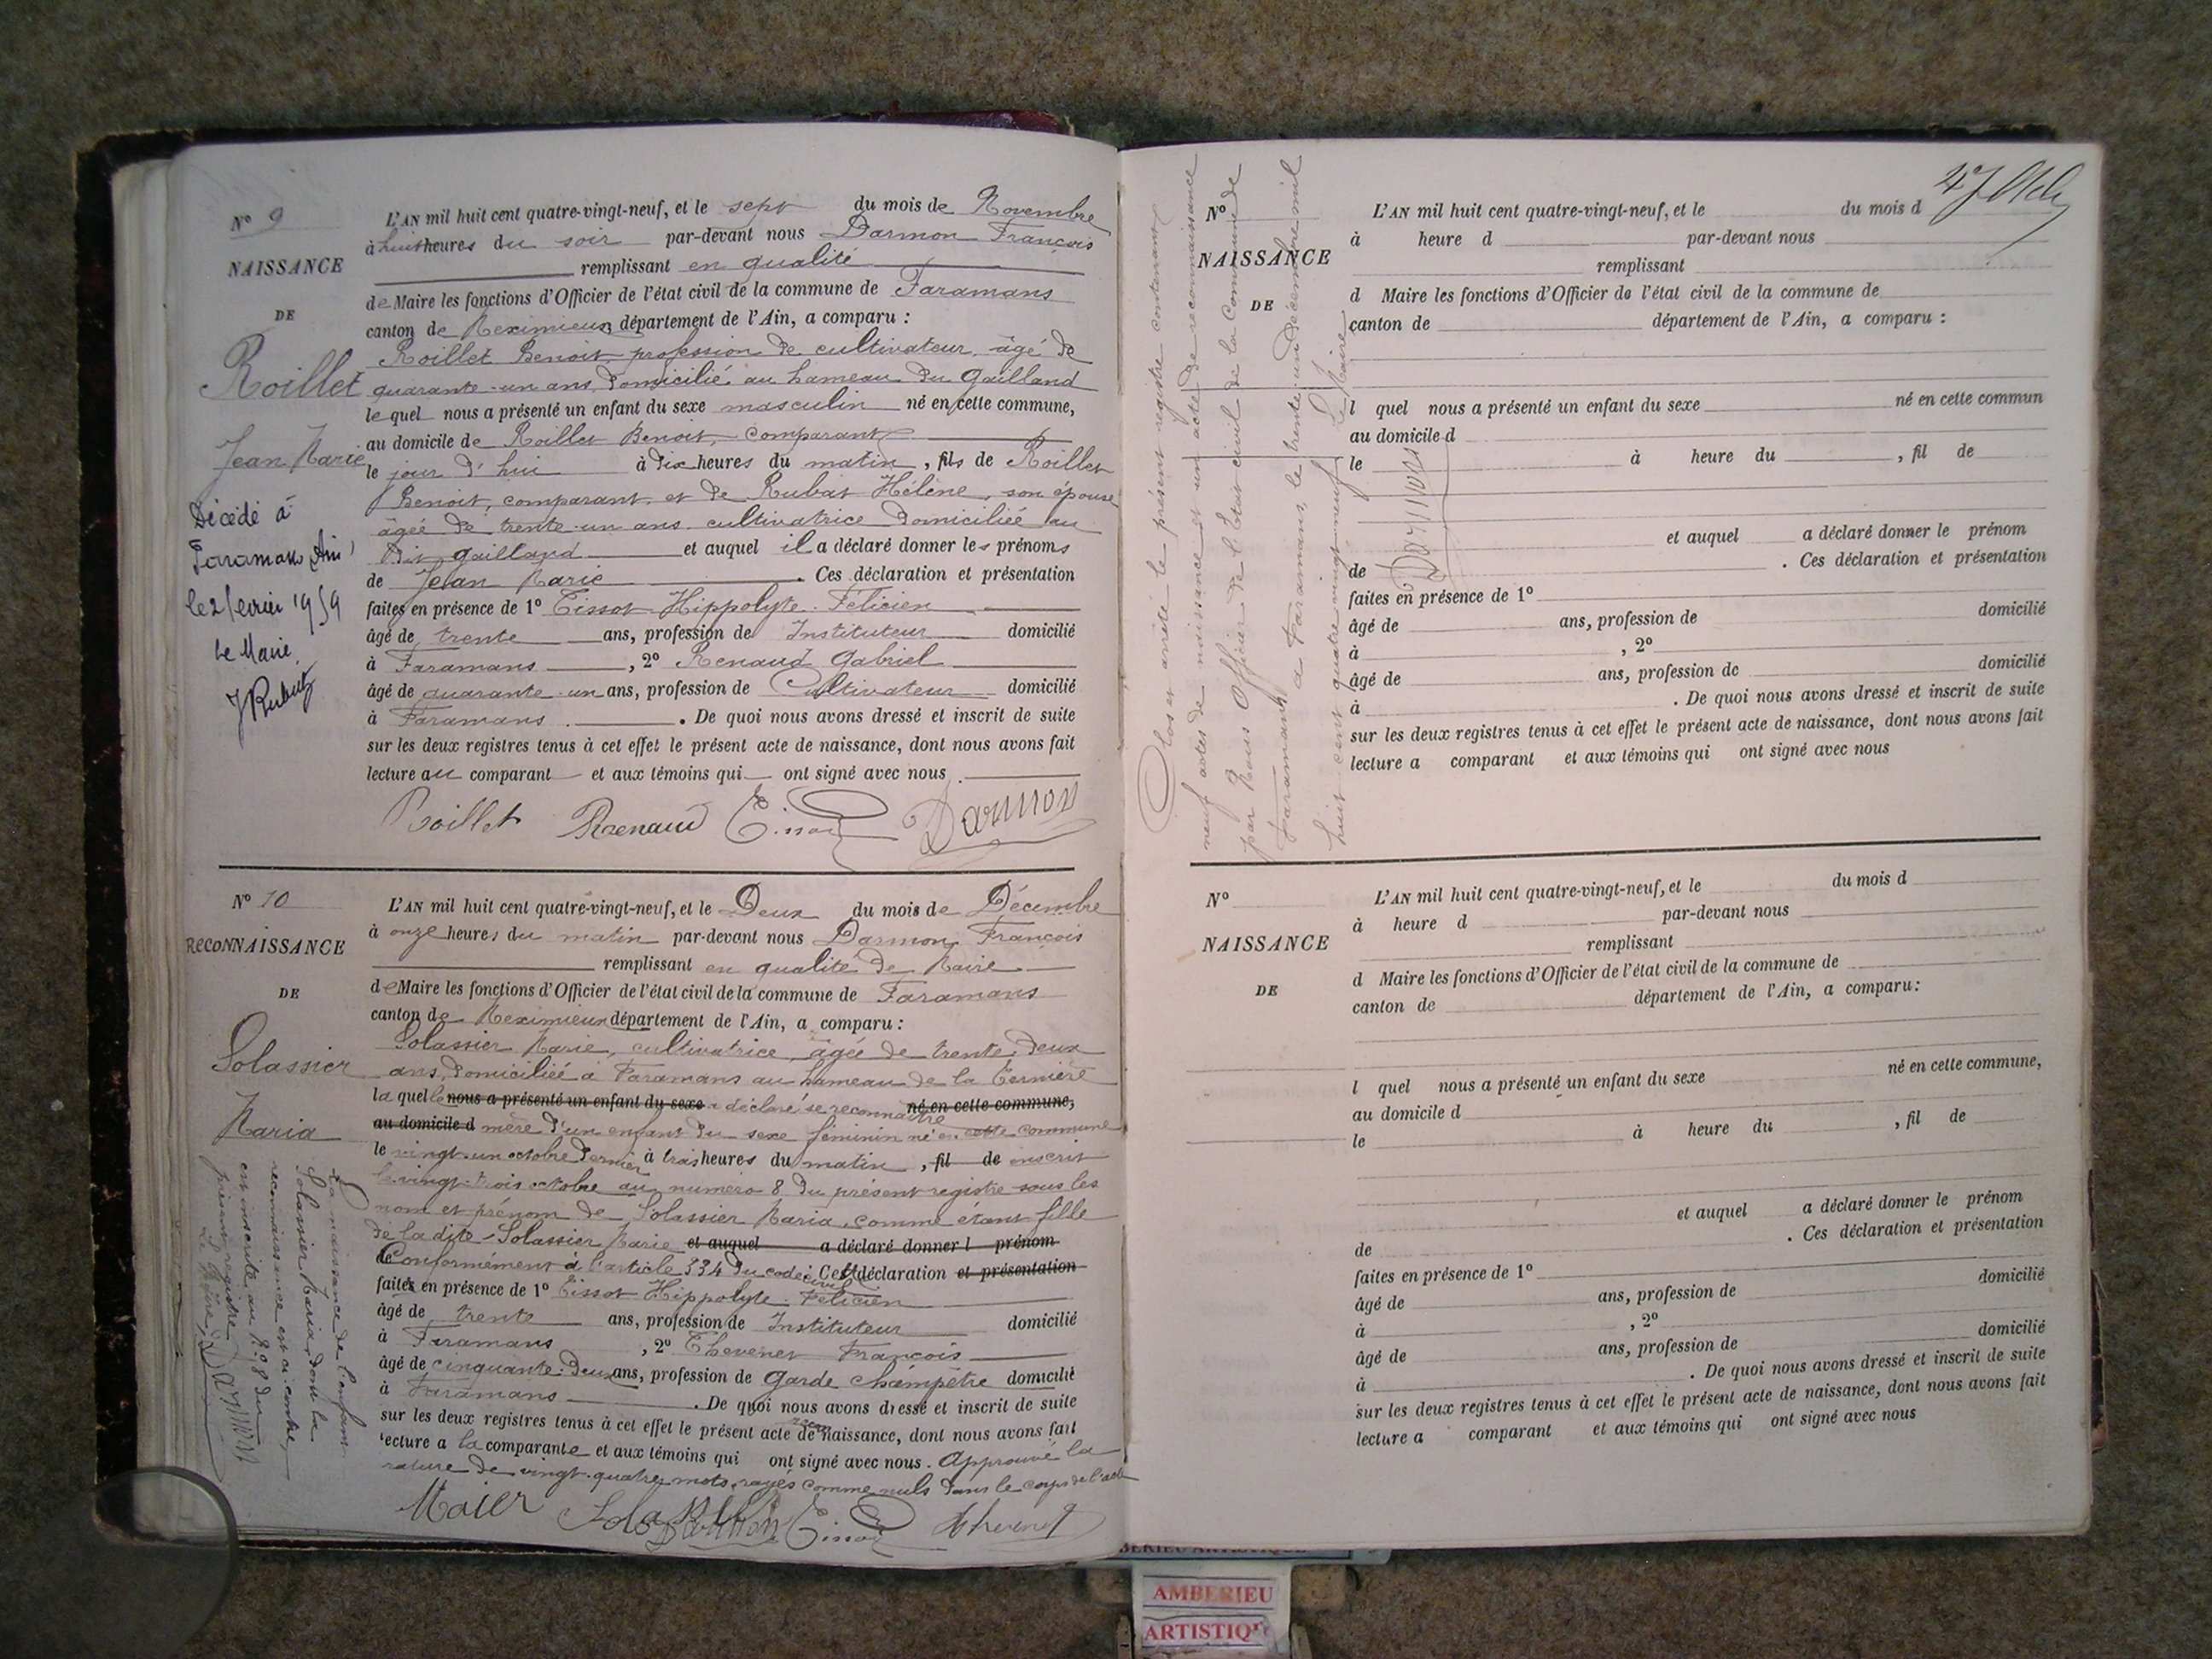 N° 9
NAISSANCE
DE
Roillet
Jean Marie
Décédé à
Faramans, Ain
le 2 février 1959
Le Maire,
L'AN mil huit cent quatre-vingt-neuf, et le sept du mois de Novembre
à huit heures du soir par-devant nous Darmon François
remplissant en qualité
de Maire les fonctions d'Officier de l'état civil de la commune de Faramans
canton de Meximieux, département de l'Ain, a comparu :
Roillet Benoit, profession de cultivateur, âgé de
quarante-un ans, domicilié au hameau du Gailland
lequel nous a présenté un enfant du sexe masculin né en cette commune,
au domicile de Roillet Benoit, comparant
le jour d'hui à dix heures du matin, fils de Roillet
Benoit, comparant et de Rubat Hélène, son épouse
âgée de trente-un ans, cultivatrice domiciliée au
dit Gailland et auquel il a déclaré donner les prénoms
de Jean Marie. Ces déclaration et présentation
faites en présence de 1° Tissot Hippolyte Félicien
âgé de trente ans, profession de Instituteur domicilié
à Faramans, 2° Renaud Gabriel
âgé de quarante-un ans, profession de Cultivateur domicilié
à Faramans. De quoi nous avons dressé et inscrit de suite
sur les deux registres tenus à cet effet le présent acte de naissance, dont nous avons fait
lecture au comparant et aux témoins qui ont signé avec nous.
Roillet Renaud Tissot Darmon
N° 10
RECONNAISSANCE
DE
Solassier
Maria
La naissance de l'enfant
Solassier Maria, dont la
reconnaissance est ci-contre,
est inscrite au N° 8 du
présent registre
Le Maire, Darmon
L'AN mil huit cent quatre-vingt-neuf, et le Deux du mois de Décembre
à onze heures du matin par-devant nous Darmon François
remplissant en qualité de Maire
de Maire les fonctions d'Officier de l'état civil de la commune de Faramans
canton de Meximieux département de l'Ain, a comparu :
Solassier Marie, cultivatrice, âgée de trente-deux
ans, domiciliée à Faramans au hameau de la
laquelle nous a présenté un enfant du sexe a déclaré se reconnaître né en cette commune,
au domicile d mère d'un enfant du sexe féminin né en cette commune
le vingt-un octobre dernier à trois heures du matin, fil de inscrit
le vingt-trois octobre au numéro 8 du présent registre sous les
nom et prénom de Solassier Maria, comme étant fille
de la dite Solassier Marie et auquel a déclaré donner l prénom
de Conformément à l'article 334 du code civil. Cette déclaration et présentation
faite en présence de 1° Tissot Hippolyte Félicien
âgé de trente ans, profession de Instituteur domicilié
à Faramans, 2° Thévenet François
âgé de cinquante-deux ans, profession de Garde champêtre domicilié
à Faramans. De quoi nous avons dressé et inscrit de suite
sur les deux registres tenus à cet effet le présent acte de naissance, dont nous avons fait
lecture a la comparante et aux témoins qui ont signé avec nous. Approuvé la
rature de vingt-quatre mots rayés comme nuls dans le corps de l'acte
Darmon Tissot Thevenet
Clos et arrêté le présent registre contenant
neuf actes de naissance et un acte de reconnaissance
par Nous Officier de l'Etat civil de la Commune de
Faramans, à Faramans, le trente-un décembre mil
huit cent quatre-vingt-neuf Le Maire
Darmon
N°
NAISSANCE
DE
L'AN mil huit cent quatre-vingt-neuf, et le du mois d
à heure d par-devant nous
remplissant
d Maire les fonctions d'Officier de l'état civil de la commune de
canton de département de l'Ain, a comparu :
l quel nous a présenté un enfant du sexe né en cette commun
au domicile d
le à heure du , fil de
et auquel a déclaré donner le prénom
de . Ces déclaration et présentation
faites en présence de 1°
âgé de ans, profession de domicilié
à , 2°
âgé de ans, profession de domicilié
à . De quoi nous avons dressé et inscrit de suite
sur les deux registres tenus à cet effet le présent acte de naissance, dont nous avons fait
lecture a comparant et aux témoins qui ont signé avec nous
N°
NAISSANCE
DE
L'AN mil huit cent quatre-vingt-neuf, et le du mois d
à heure d par-devant nous
remplissant
d Maire les fonctions d'Officier de l'état civil de la commune de
canton de département de l'Ain, a comparu :
l quel nous a présenté un enfant du sexe né en cette commune,
au domicile d
le à heure du , fil de
et auquel a déclaré donner le prénom
de . Ces déclaration et présentation
faites en présence de 1°
âgé de ans, profession de domicilié
à , 2°
âgé de ans, profession de domicilié
à . De quoi nous avons dressé et inscrit de suite
sur les deux registres tenus à cet effet le présent acte de naissance, dont nous avons fait
lecture a comparant et aux témoins qui ont signé avec nous
AMBERIEU
ARTISTIQUE